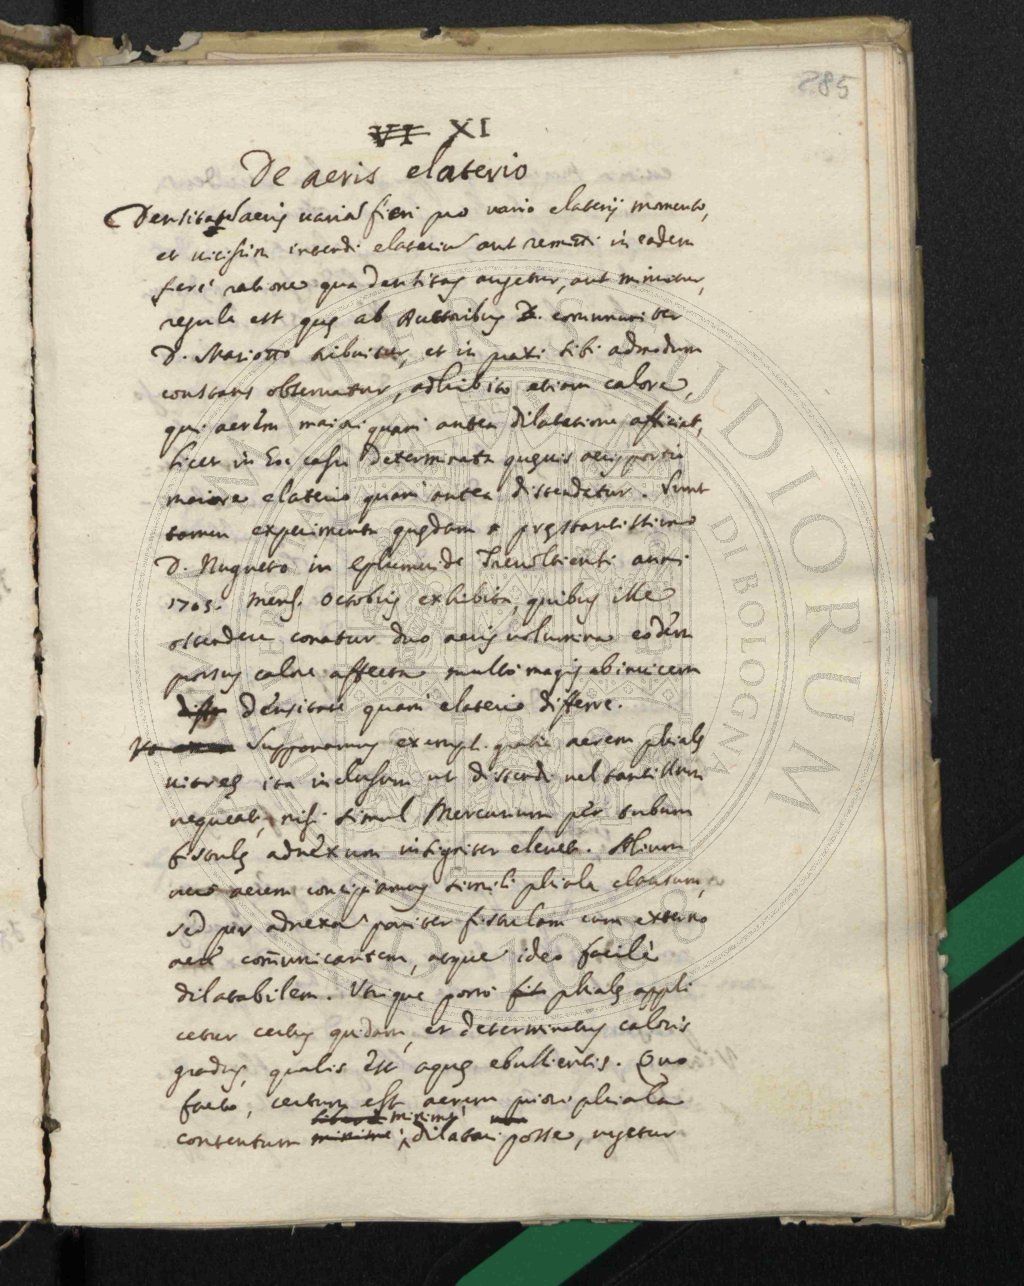 285
VI XI
De aeris elaterio
Densitatem aeris variam fieri pro vario elaterij momento,
et vicissim intendi elaterium aut remitti in eadem
ferè ratione qua densitas augetur, aut minuitur,
regula est quę ab Auctoribus communiter
D. Mariotto tribuitur, et in praxi sibi admodum
constans observatur, adhibito etiam calore,
qui aerem maiori quam antea dilatatione afficiat,
licet in hoc casu determinata quęvis aeris portio
maiore elaterio quam antea distendatur. Sunt
tamen experimenta quędam a pręstantissimo
D. Nugueto in Ephemeride Trevoltiensi anni
1705. mens. Octobris exhibita, quibus ille
ostendere conatur duo aeris volumina eodem
prorsus calore affecta multo magis ab invicem
diffe densitate quam elaterio differre.
Supponamus exempl. gratia aerem phialę
vitreę ita inclusum ut distendi vel tantillum
nequeat, nisi simul Mercurium per tubum
fistulę adnexum insigniter elevet. Alium
vero aerem concipiamus simili phiala clausum,
sed per adnexam pariter fistulam cum externo
aere com̃unicantem, atque ideo facilè
dilatabilem. Utrique porro phialę appli
cetur certus quidam, et determinatus caloris
gradus, qualis est aquę ebullientis. Quo
facto, certum est aerem priori phiala
minimè
contentum dilatari posse, urgetur